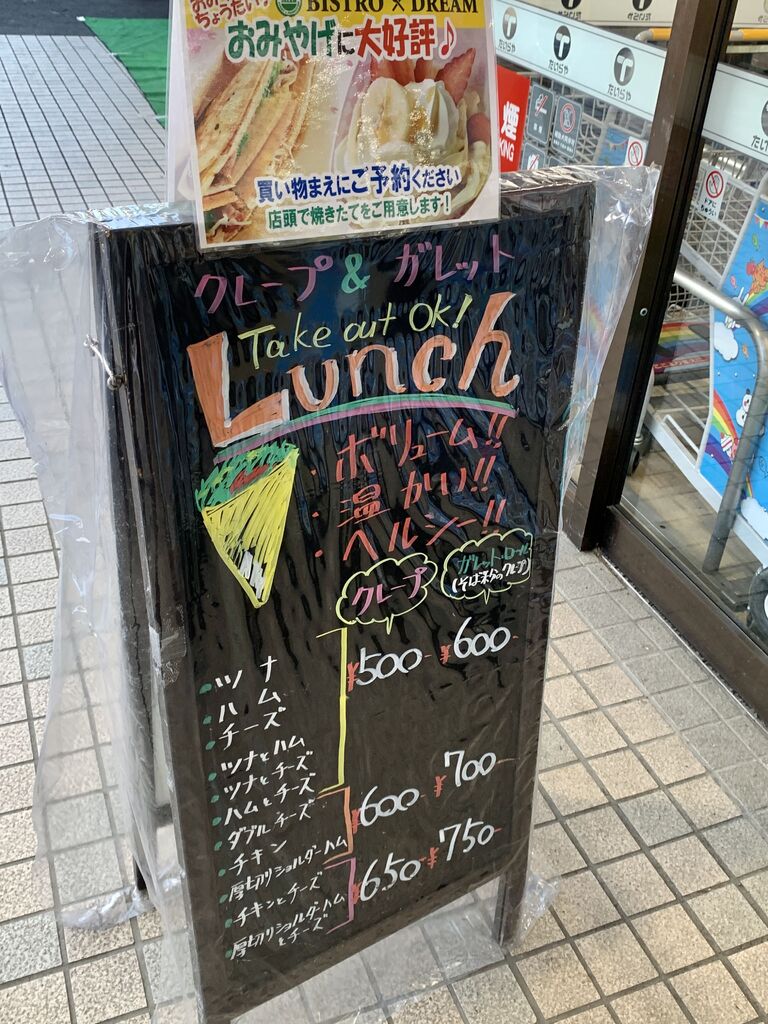 ちょうだい!
BISTRO × DREAM
おみやげに大好評♪
買い物まえにご予約ください
店頭で焼きたてをご用意します!
クレープ & ガレット
Take out OK!
Lunch
・ボリューム!!
・温かい!!
・ヘルシー!!
クレープ
ガレット・ロール
(そば粉のクレープ)
¥500 ¥600
・ツナ
・ハム
・チーズ
・ツナとハム
・ツナとチーズ
・ハムとチーズ
・ダブルチーズ
¥600 ¥700
・チキン
・厚切りショルダーハム
¥650 ¥750
・チキンとチーズ
・厚切りショルダーハム
とチーズ
煙
KING
たいらや
たいらや